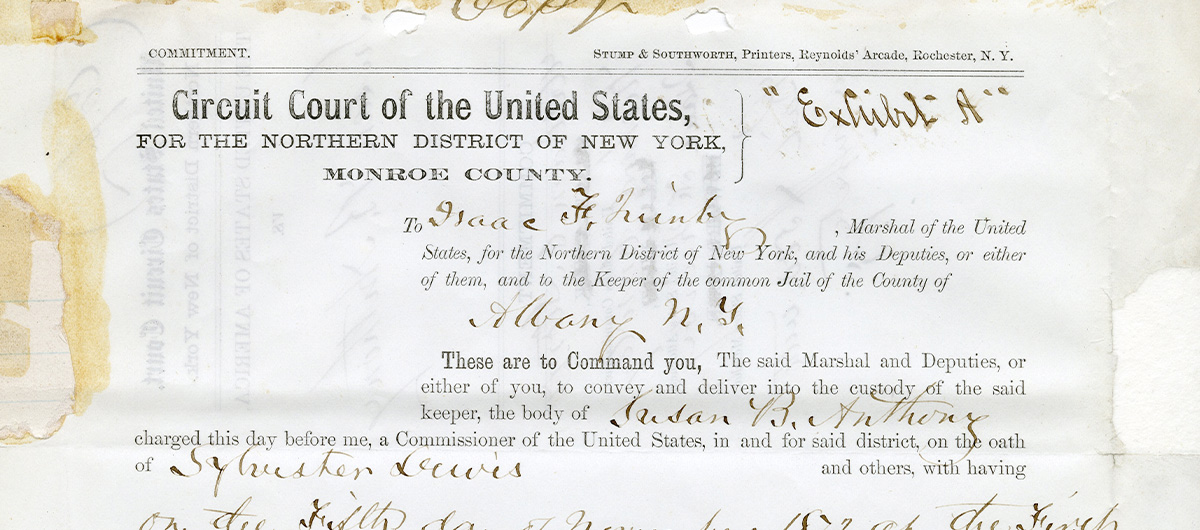 Copy
COMMITMENT. STUMP & SOUTHWORTH, Printers, Reynolds' Arcade, Rochester, N. Y.
Circuit Court of the United States, "Exhibit A"
FOR THE NORTHERN DISTRICT OF NEW YORK,
MONROE COUNTY.
To Isaac F. Quinby, Marshal of the United
States, for the Northern District of New York, and his Deputies, or either
of them, and to the Keeper of the common Jail of the County of
Albany N. Y.
These are to Command you, The said Marshal and Deputies, or
either of you, to convey and deliver into the custody of the said
keeper, the body of Susan B. Anthony
charged this day before me, a Commissioner of the United States, in and for said district, on the oath
of Sylvester Lewis and others, with having
on the Fifth day of